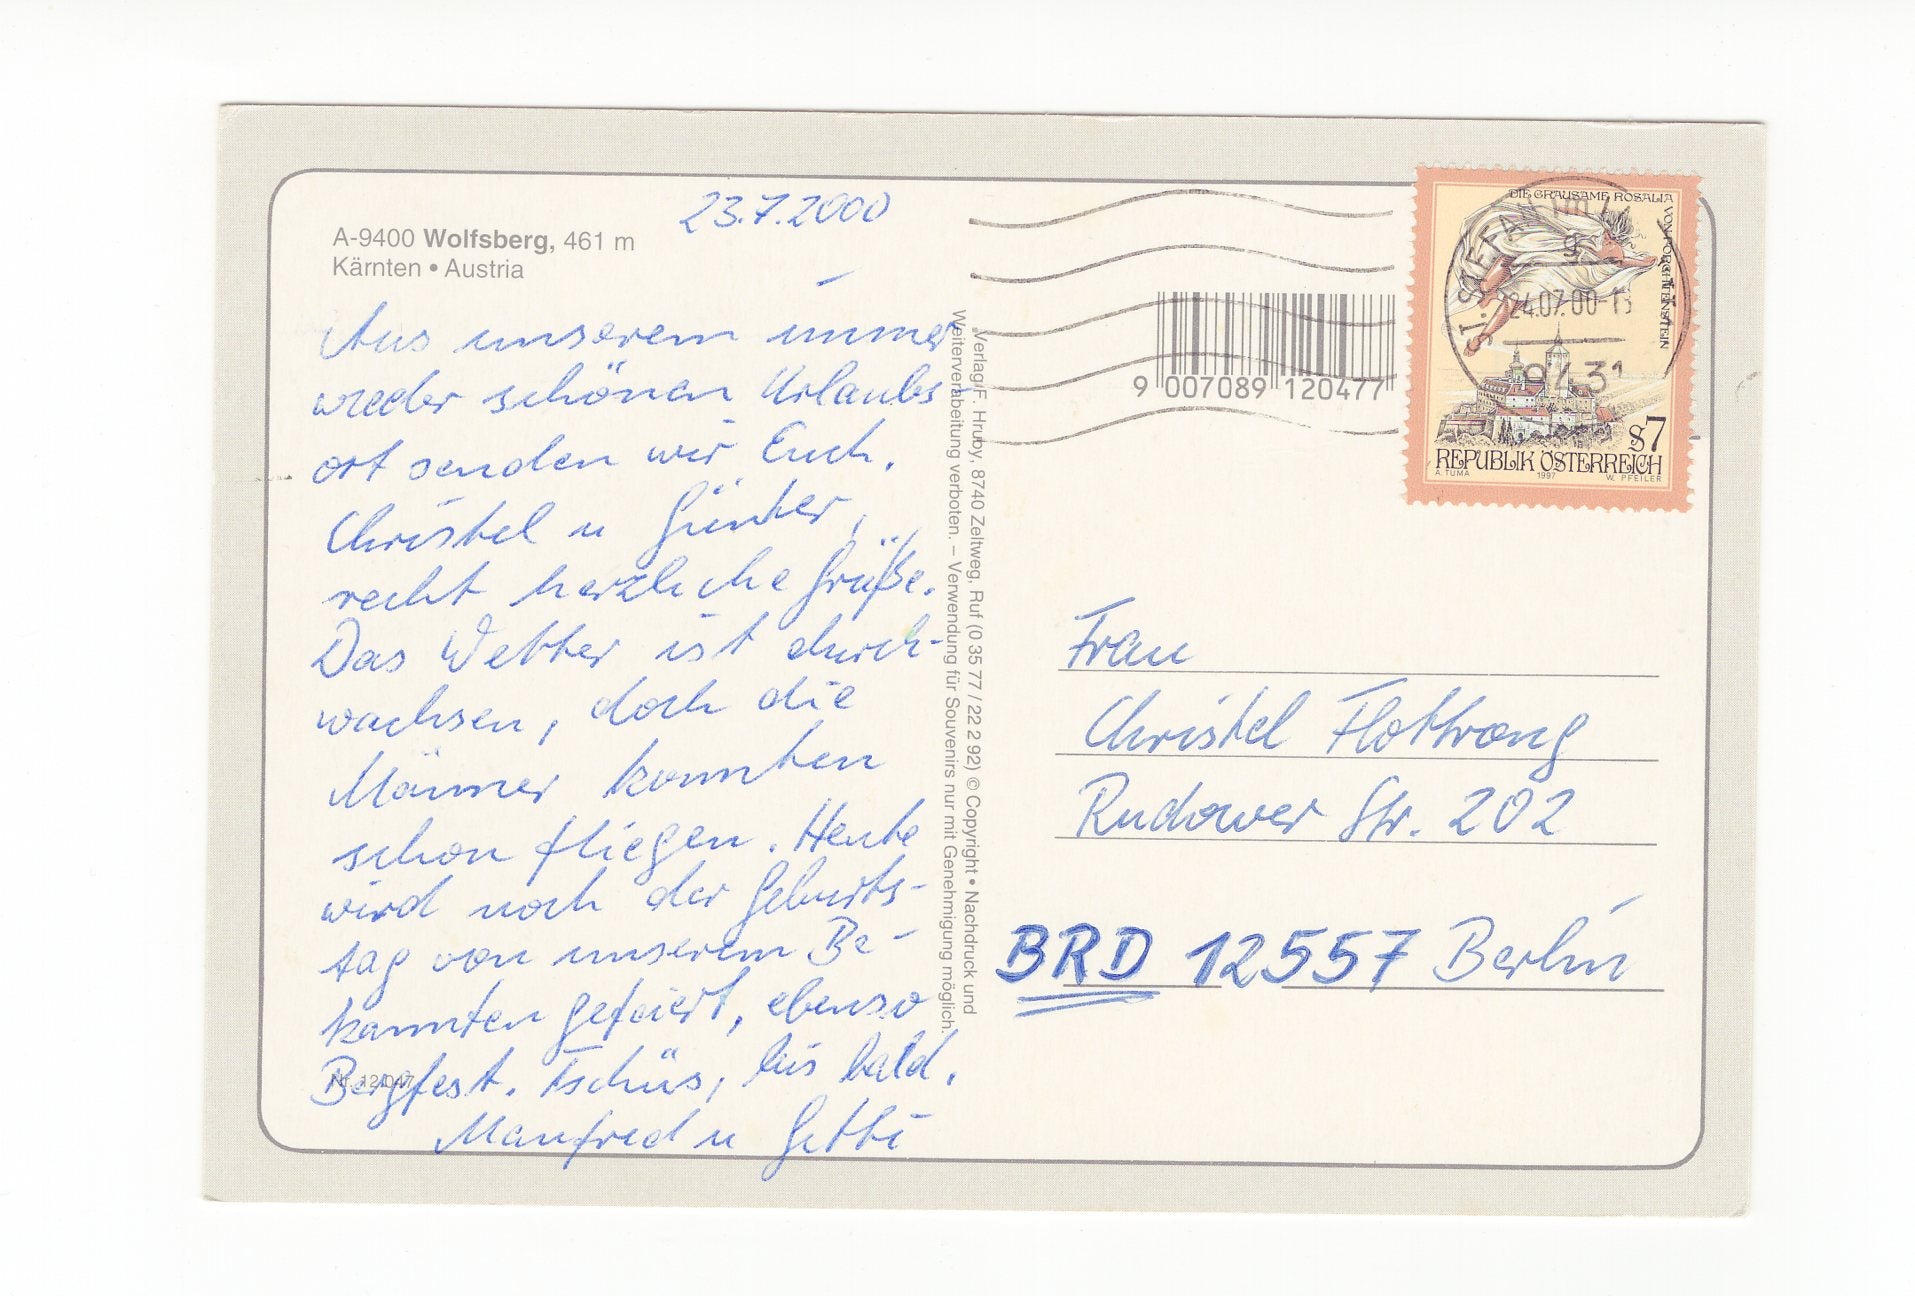 A-9400 Wolfsberg, 461 m
Kärnten • Austria
23.7.2000
Aus unserem immer
wieder schönen Urlaubs
ort senden wir Euch,
Christel u Günter,
recht herzliche Grüße.
Das Wetter ist durch-
wachsen, doch die
Männer konnten
schon fliegen. Heute
wird noch der Geburts-
tag von unserem Be-
kannten gefeiert, ebenso
Bergfest. Tschüs, bis bald.
Manfred u Gitti
Nr. 12047
Verlag F. Hruby, 8740 Zeltweg, Ruf (0 35 77 / 22 2 92) © Copyright • Nachdruck und
Weiterverabeitung verboten. – Verwendung für Souvenirs nur mit Genehmigung möglich.
9 007089 120477
DIE GRAUSAME ROSALIA
VON FORCHTENSTEIN
ST. STEFAN IM
9
24.07.00-13
9431
S7
REPUBLIK ÖSTERREICH
A. TUMA 1997 W. PFEILER
Frau
Christel Flottrong
Rudower Str. 202
BRD 12557 Berlin